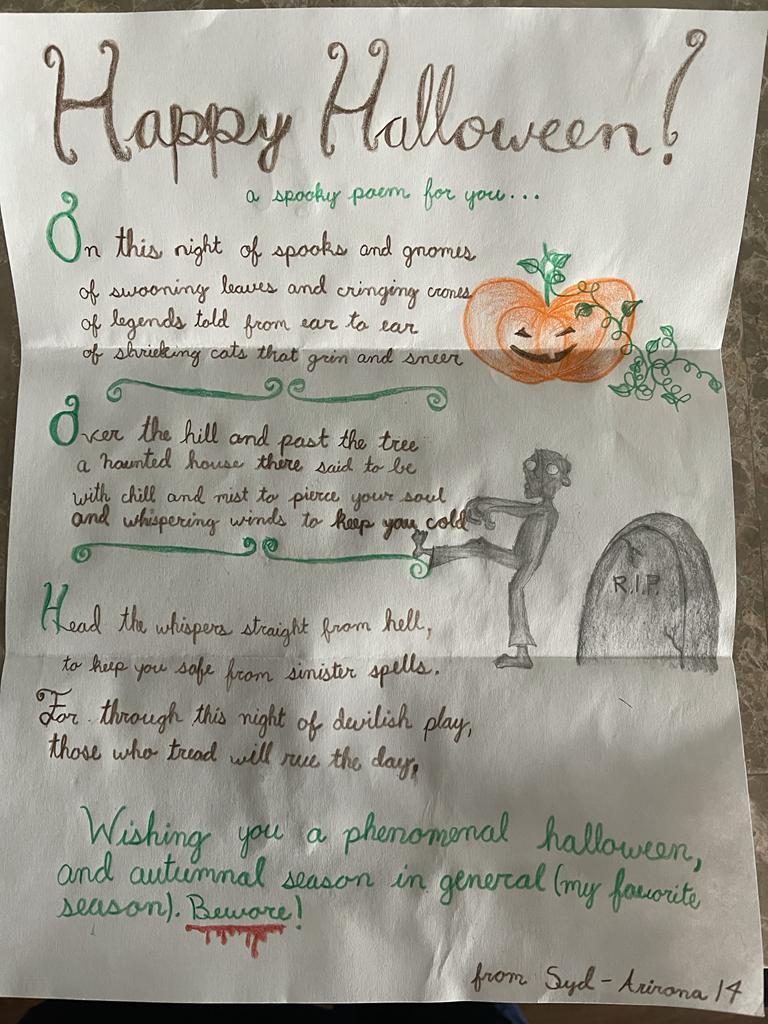 Happy Halloween!
a spooky poem for you...
On this night of spooks and gnomes
of swooning leaves and cringing crones
of legends told from ear to ear
of shrieking cats that grin and sneer
Over the hill and past the tree
a haunted house there said to be
with chill and mist to pierce your soul
and whispering winds to keep you cold
Head the whispers straight from hell,
to keep you safe from sinister spells.
For through this night of devilish play,
those who tread will rue the day,
R.I.P.
Wishing you a phenomenal halloween,
and autumnal season in general (my favorite
season). Beware!
from Syd - Arizona 14